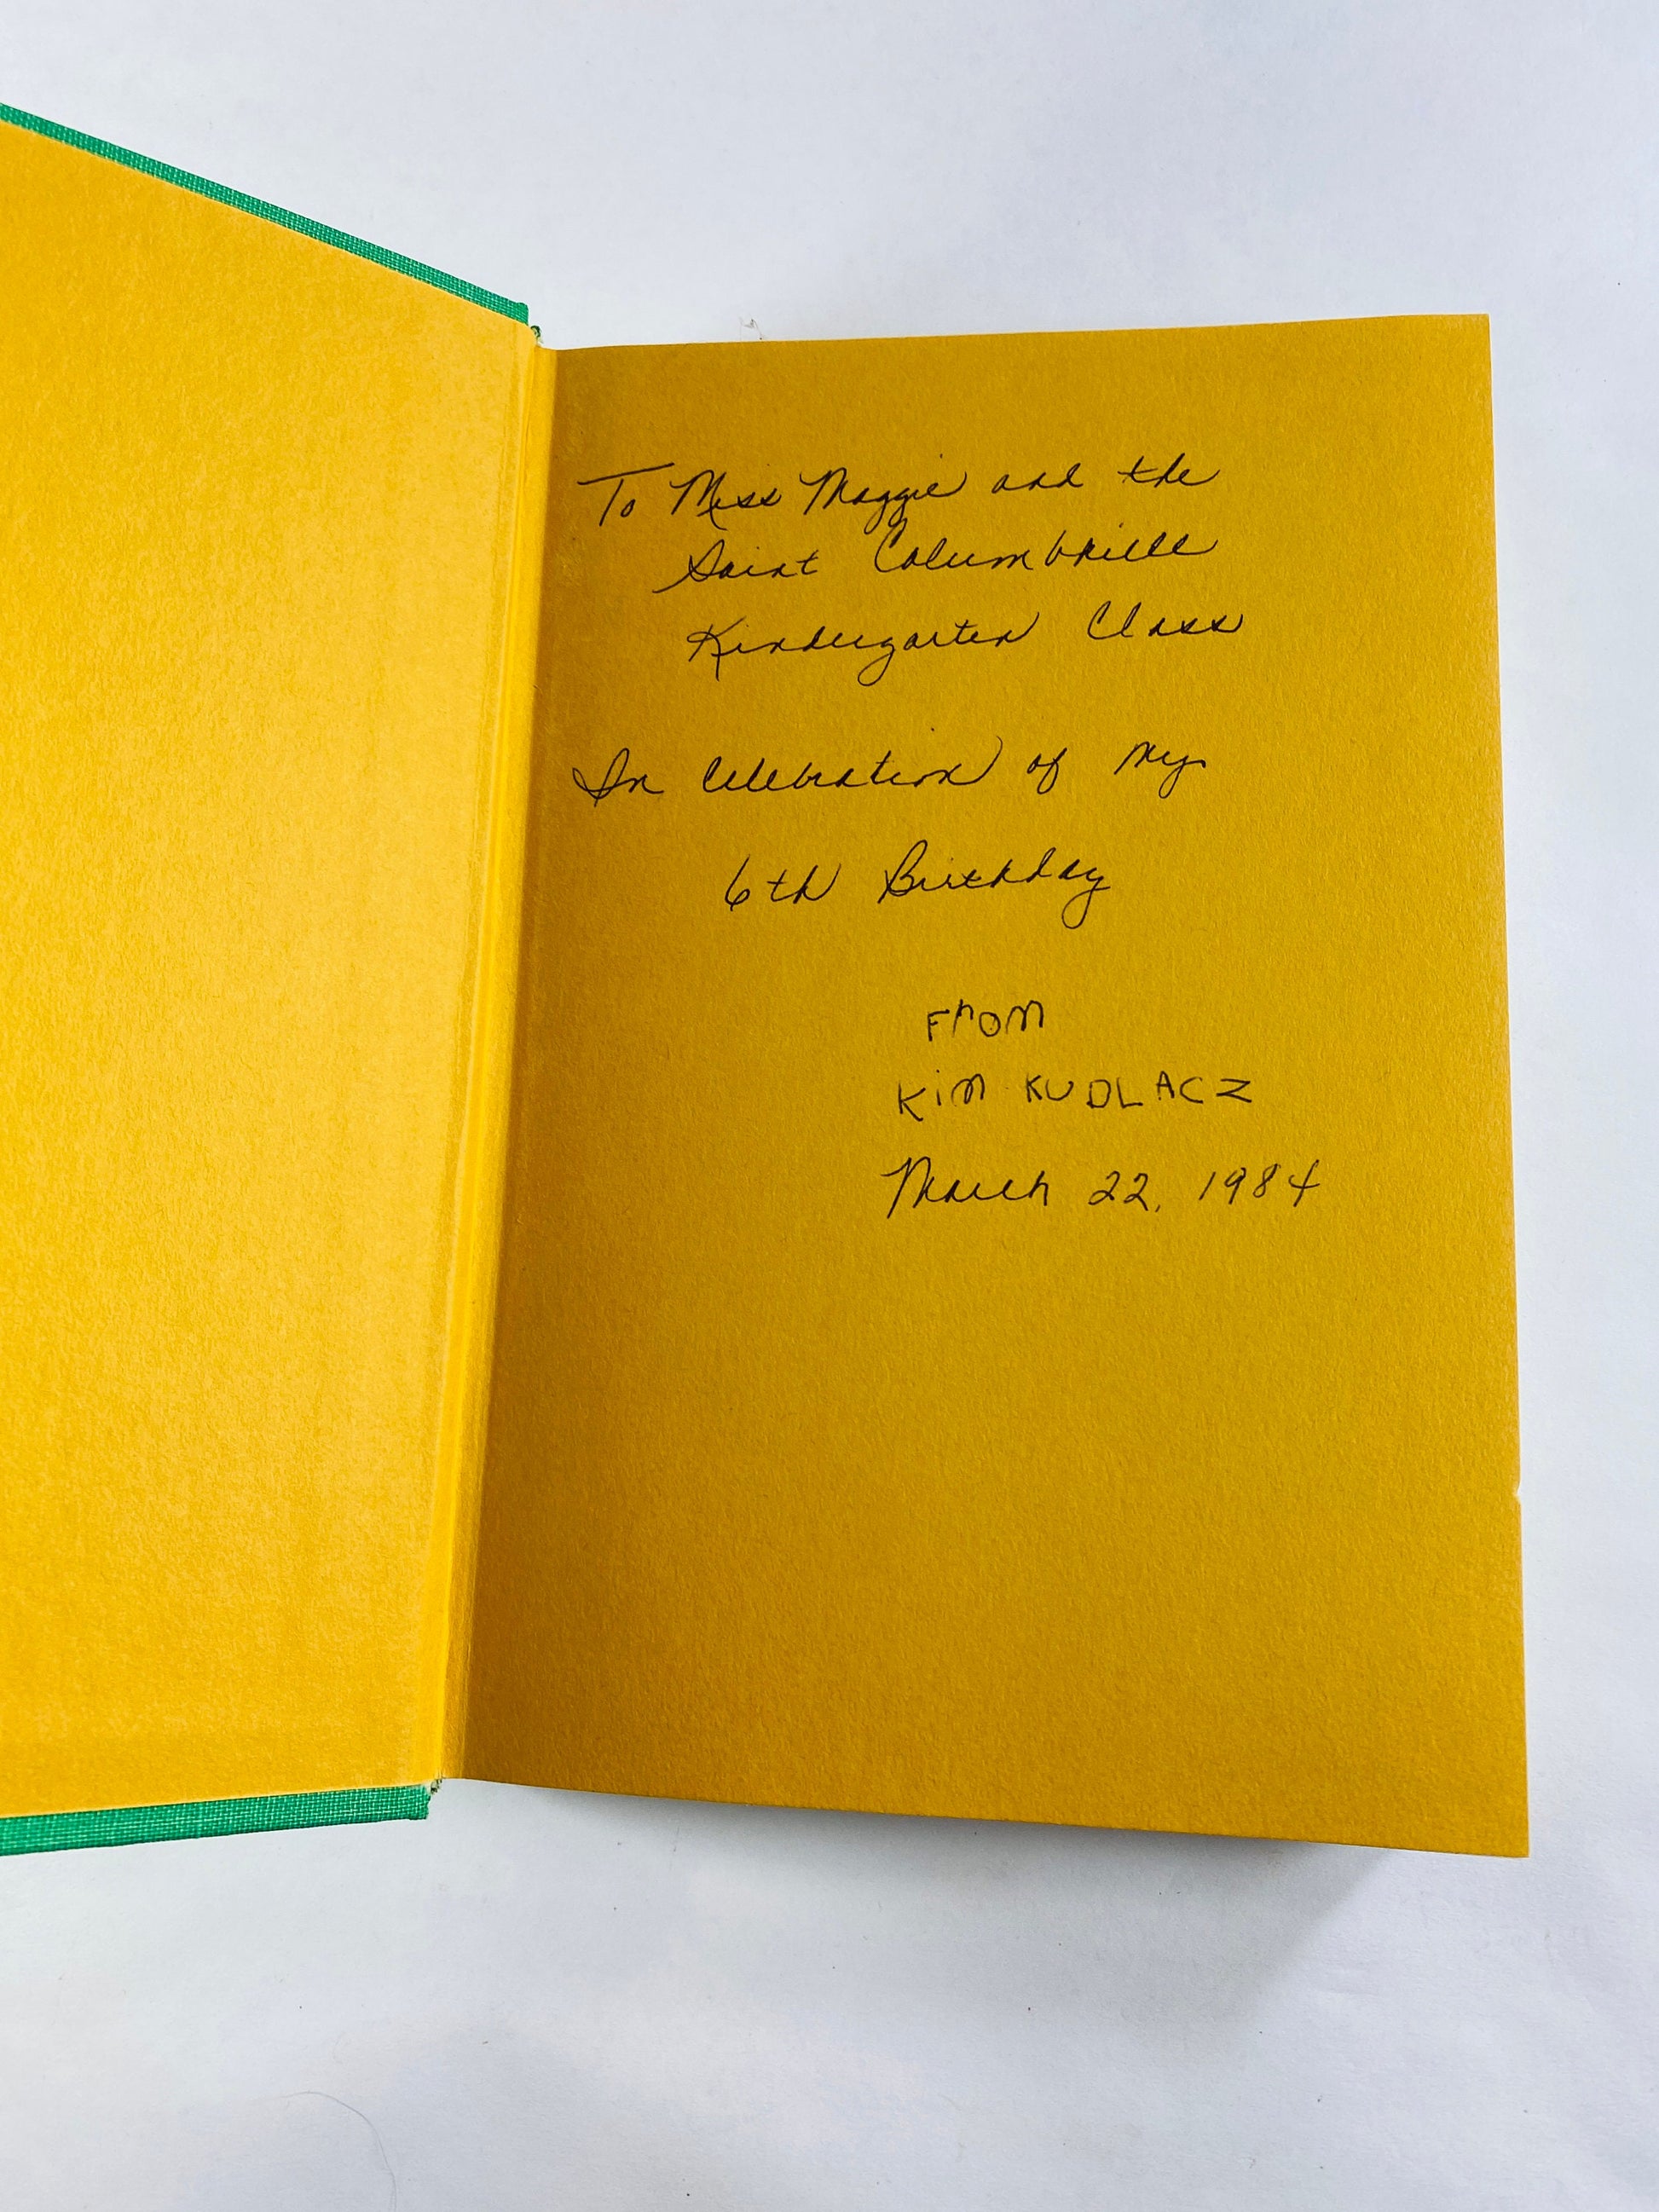 To Miss Maggie and the
Saint Columbkille
Kindergarten Class
In Celebration of My
6th Birthday
From
Kim KUDLACZ
March 22, 1984